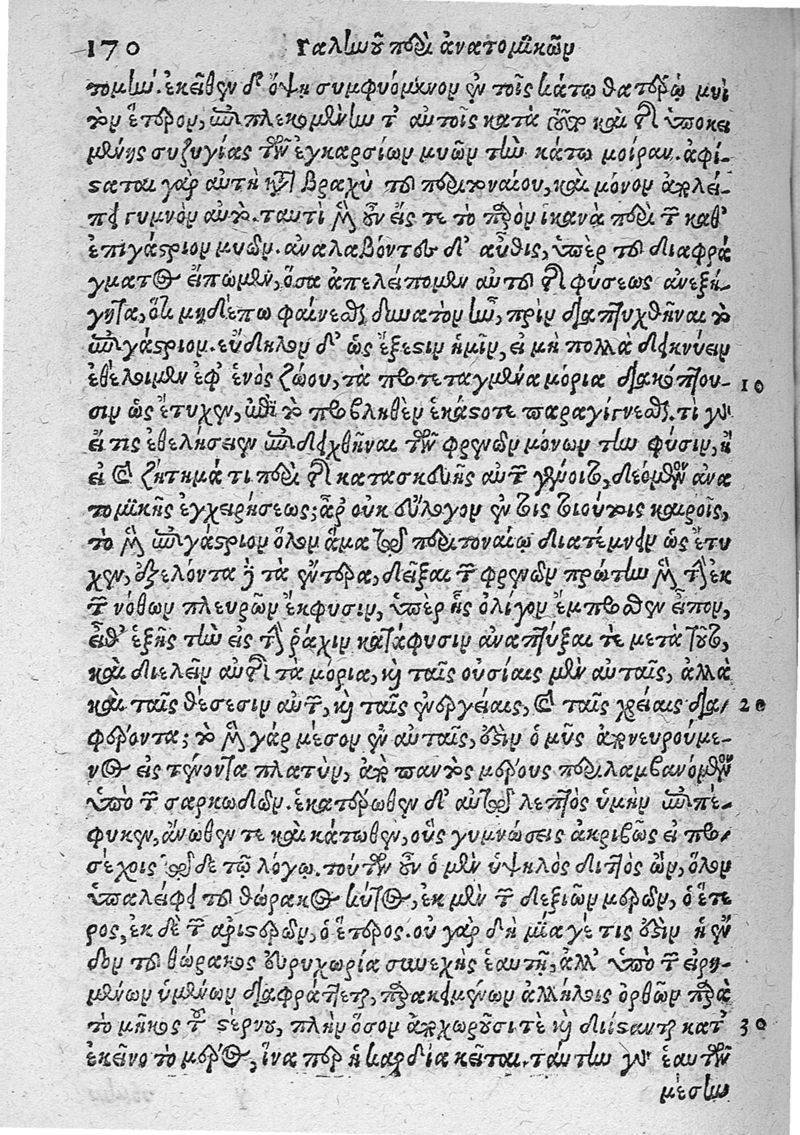 170 Γαληνοῦ περὶ ἀνατομικῶν
τομὴν. ἐκεῖθεν δ' ὄψῃ συμφυόμενον ἐν τοῖς κάτω θατέρῳ μυὶ
τὸν ἕτερον, ἐπιπλεκομένην τ' αὐτοῖς κατὰ τοῦτο καὶ τῆς ὑποκει
μένης συζυγίας τῶν ἐγκαρσίων μυῶν τὴν κάτω μοίραν. ἀφί-
σαται γὰρ αὕτη κατὰ βραχὺ τοῦ περιτοναίου, καὶ μόνον ἀπολεί-
πει γυμνὸν αὐτό. ταυτὶ μὲν οὖν εἴς τε τὸ παρὸν ἱκανὰ περὶ τῶν καθ'
ἐπιγάστριον μυῶν. ἀναλαβόντες δ' αὖθις, ὑπὲρ τοῦ διαφρά
γματος εἴπωμεν, ὅσα ἀπελείπομεν αὐτοῦ τῆς φύσεως ἀνεξή-
γητα, ὅτι μηδέπω φαίνεσθαι δυνατὸν ἦν, πρὶν διαπτυχθῆναι τὸ
ἐπιγάστριον. εὔδηλον δ' ὡς ἔξεστιν ἡμῖν, εἰ μὴ πολλὰ δεικνύειν
ἐθέλοιμεν ἐφ' ἑνὸς ζώου, τὰ προτεταγμένα μόρια διακόπτου- 10
σιν ὡς ἔτυχεν, ἐπὶ τὸ προβληθὲν ἑκάστοτε παραγίγνεσθαι. τί γὰρ
εἴ τις ἐθελήσειεν ἐπιδειχθῆναι τῶν φρενῶν μόνων τὴν φύσιν, ἢ
εἰ καὶ ζήτημά τι περὶ τῆς κατασκευῆς αὐτῶν γένοιτο, δεόμενον ἀνα
τομικῆς ἐγχειρήσεως; ἆρ' οὐκ εὔλογον ἐν τοῖς τοιούτοις καιροῖς,
τὸ μὲν ἐπιγάστριον ὅλον ἅμα τῷ περιτοναίῳ διατέμνειν ὡς ἔτυ
χεν, ἐξελόντα δὲ τὰ ἔντερα, δεῖξαι τῶν φρενῶν πρώτην μὲν τὴν ἐκ
τῶν νόθων πλευρῶν ἔκφυσιν, ὑπὲρ ἧς ὀλίγον ἔμπροσθεν εἶπον,
εἶθ' ἑξῆς τὴν εἰς τὴν ῥάχιν κατάφυσιν ἀναπτύξαι τὲ μετὰ τοῦτο,
καὶ διελεῖν αὐτῆς τὰ μόρια, καὶ ταῖς οὐσίαις μὲν αὐταῖς, ἀλλὰ
καὶ ταῖς θέσεσιν αὐτῶν, καὶ ταῖς ἐνεργείαις, καὶ ταῖς χρείαις δια- 20
φέροντα; τὸ μὲν γὰρ μέσον ἐν αὐταῖς, ἐστὶν ὁ μῦς ἀπονευρούμε-
νος εἰς τένοντα πλατὺν, ἀπὸ παντὸς μέρους περιλαμβανόμενον
ὑπὸ τῶν σαρκωδῶν. ἑκατέρωθεν δ' αὐτοῦ λεπτὸς ὑμὴν ἐπιπέ-
φυκεν, ἄνωθεν τε καὶ κάτωθεν, οὓς γυμνώσεις ἀκριβῶς εἰ προ-
σέχοις τῷδε τῷ λόγῳ. τούτων οὖν ὁ μὲν ὑψηλὸς διττὸς ὢν, ὅλον
ὑπαλείφει τοῦ θώρακος κύτος, ἐκ μὲν τῶν δεξιῶν μερῶν, ὁ ἕτε
ρος, ἐκ δὲ τῶν ἀριστερῶν, ὁ ἕτερος. οὐ γὰρ δὴ μία γέ τις ἐστὶν ἡ ἔν
δον τοῦ θώρακος εὐρυχωρία συνεχὴς ἑαυτῇ, ἀλλ' ὑπὸ τῶν εἰρη-
μένων ὑμένων διαφράττεται, παρακειμένων ἀλλήλοις ὀρθῶν παρὰ
τὸ μῆκος τοῦ στέρνου, πλὴν ὅσον ἀποχωροῦσι τὲ καὶ διίστανται κατ' 30
ἐκεῖνο τὸ μέρος, ἵνα περ ἡ καρδία κεῖται. ταύτην γὰρ ἑαυτῶν
μέσην